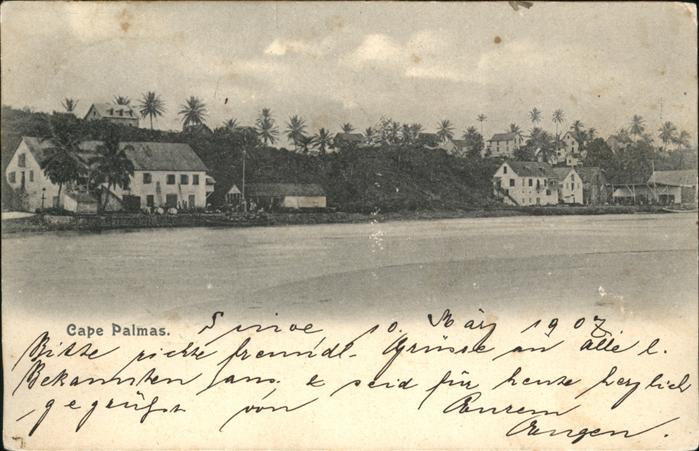 Cape Palmas.
Sinoe 10. März 1907
Bitte richte freundl. Grüsse an alle l.
Bekannten aus. & seid für heute herzlich
gegrüsst von Eurem
Eugen.